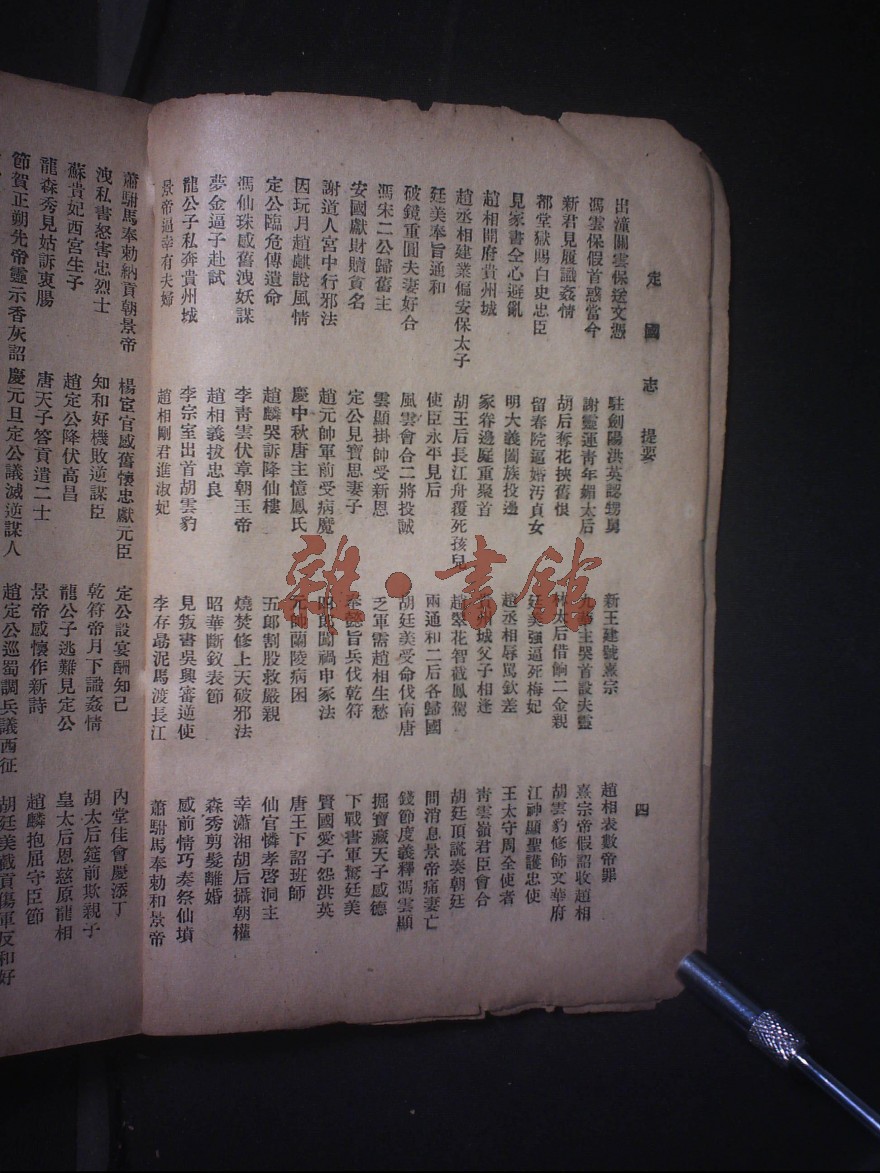 定國志 提要 四
出潼關雲保送文憑 駐劍陽洪英認甥舅 新王建號熹宗 趙相表數帝罪
馮雲保假首惑當今 謝靈運青年媚太后 主哭首設夫靈 熹宗帝假詔收趙相
新君見履識姦情 胡后奪花挾舊恨 太后借餉二金親 胡雲豹修飾文華府
都堂獄賜白史忠臣 留春院逼婚汚貞女 廷美強逼死梅妃 江神顯聖護忠使
見家書仝心避亂 明大義闔族投邊 趙丞相辱罵欽差 王太守周全使者
趙相開府貴州城 家眷邊庭重聚首 州城父子相逢 青雲嶺君臣會合
趙丞相建業偏安保太子 胡王后長江舟覆死孩兒 趙翠花智截鳳駕 胡廷頂謊奏朝廷
廷美奉旨通和 使臣永平見后 兩通和二后各歸國 問消息景帝痛妻亡
破鏡重圓夫妻好合 風雲會合二將投誠 胡廷美受命伐南唐 錢節度義釋馮雲顯
馮宋二公歸舊主 雲顯掛帥受新恩 乏軍需趙相生愁 掘寶藏天子感德
安國獻財贖貧名 定公見寶思妻子 奉懿旨兵伐乾符 下戰書軍駑廷美
謝道人宮中行邪法 趙元帥軍前受病魔 四郎闖禍申家法 賢國愛子怨洪英
因玩月趙麒說風情 慶中秋唐主憶鳳氏 元帥蘭陵病困 唐王下詔班師
定公臨危傳遺命 趙麟哭訴降仙樓 五郎割股救嚴親 仙官憐孝啓洞主
馮仙珠感舊洩妖謀 李青雲伏章朝玉帝 燒焚修上天破邪法 幸瀟湘胡后攝朝權
夢金逼子赴試 趙相義拔忠良 昭華斷釵表節 森秀剪髮離婚
龍公子私奔貴州城 李宗室出首胡雲豹 見叛書吳興審逆使 感前情巧奏祭仙墳
景帝逼幸有夫婦 趙相剛君進淑妃 李存勗泥馬渡長江 蕭駙馬奉勅和景帝
蕭駙馬奉勅納貢朝景帝 楊宦官感舊懷忠獻元臣 定公設宴酬知己 內堂佳會慶添丁
洩私書怒害忠烈士 知和好機敗逆謀臣 乾符帝月下識姦情 胡太后筵前欺親子
蘇貴妃西宮生子 趙定公降伏高昌 龍公子逃難見定公 皇太后恩慈原龍相
龍森秀見姑訴衷腸 唐天子答貢遣二士 景帝感懷作新詩 趙麟抱屈守臣節
節賀正朔先帝靈示香灰詔 慶元旦定公議滅逆謀人 趙定公巡蜀調兵議西征 胡廷美截貢傷軍反和好
雜·書館